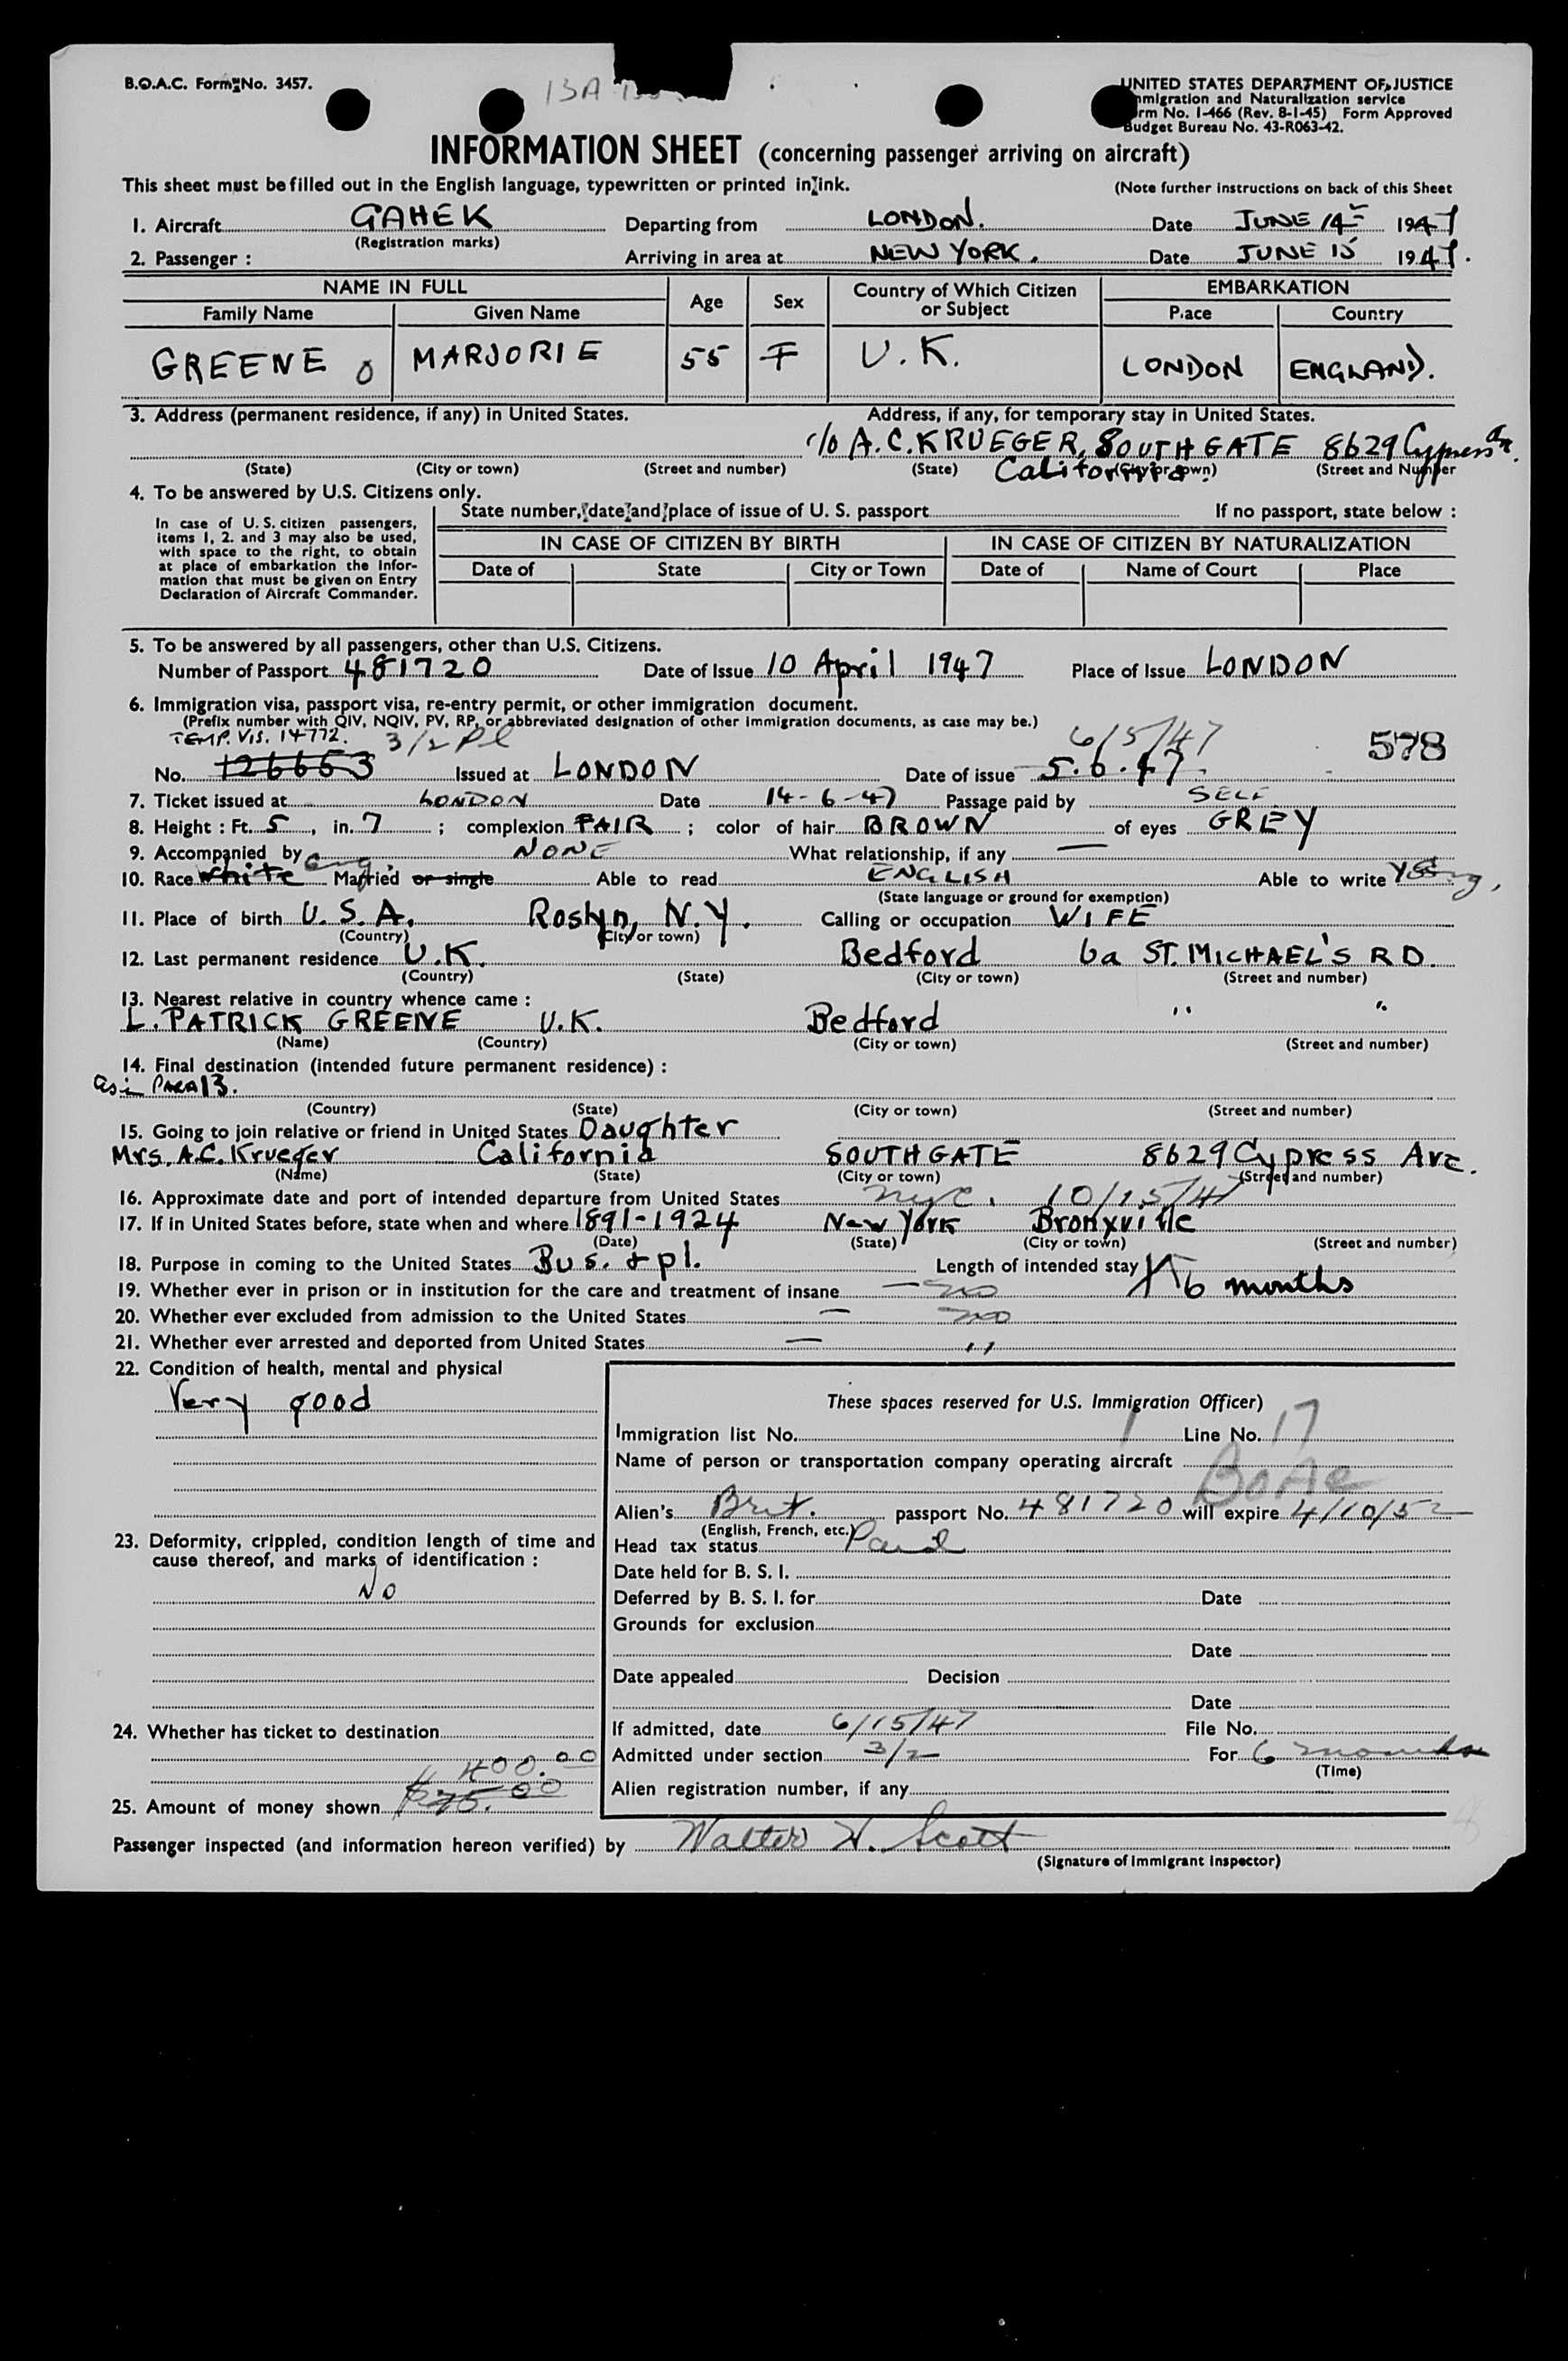 B.O.A.C. Form No. 3457.
13A
UNITED STATES DEPARTMENT OF JUSTICE
mmigration and Naturalization service
rm No. I-466 (Rev. 8-1-45) Form Approved
Budget Bureau No. 43-R063-42.
INFORMATION SHEET (concerning passenger arriving on aircraft)
This sheet must be filled out in the English language, typewritten or printed in ink. (Note further instructions on back of this Sheet
1. Aircraft GAHEK Departing from LONDON. Date JUNE 14 1947
(Registration marks)
2. Passenger : Arriving in area at NEW YORK. Date JUNE 15 1947.
NAME IN FULL Age Sex Country of Which Citizen or Subject EMBARKATION
Family Name Given Name Place Country
GREENE O MARJORIE 55 F U.K. LONDON ENGLAND.
3. Address (permanent residence, if any) in United States. Address, if any, for temporary stay in United States.
c/o A.C. KRUEGER, SOUTH GATE 8629 Cypress Av.
(State) (City or town) (Street and number) (State) California. (City or town) (Street and Number
4. To be answered by U.S. Citizens only.
State number, date and place of issue of U. S. passport If no passport, state below :
In case of U. S. citizen passengers,
items 1, 2. and 3 may also be used,
with space to the right, to obtain
at place of embarkation the Infor-
mation that must be given on Entry
Declaration of Aircraft Commander.
IN CASE OF CITIZEN BY BIRTH IN CASE OF CITIZEN BY NATURALIZATION
Date of State City or Town Date of Name of Court Place
5. To be answered by all passengers, other than U.S. Citizens.
Number of Passport 481720 Date of Issue 10 April 1947 Place of Issue LONDON
6. Immigration visa, passport visa, re-entry permit, or other immigration document.
(Prefix number with QIV, NQIV, PV, RP, or abbreviated designation of other immigration documents, as case may be.)
TEMP. VIS. 14772. 3/2 pl 6/5/47 578
No. 126653 Issued at LONDON Date of issue 5.6.47.
7. Ticket issued at LONDON Date 14-6-47 Passage paid by SELF
8. Height : Ft. 5, in. 7 ; complexion FAIR ; color of hair BROWN of eyes GREY
9. Accompanied by NONE What relationship, if any —
10. Race white Eng. Married or single Able to read ENGLISH Able to write YES
(State language or ground for exemption)
11. Place of birth U.S.A. Roslyn, N.Y. Calling or occupation WIFE
(Country) (City or town)
12. Last permanent residence U.K. Bedford 6a ST. MICHAEL'S RD.
(Country) (State) (City or town) (Street and number)
13. Nearest relative in country whence came :
L. PATRICK GREENE U.K. Bedford " "
(Name) (Country) (City or town) (Street and number)
14. Final destination (intended future permanent residence) :
as in PARA 13.
(Country) (State) (City or town) (Street and number)
15. Going to join relative or friend in United States Daughter
Mrs. A.C. Krueger California SOUTH GATE 8629 Cypress Ave.
(Name) (State) (City or town) (Street and number)
16. Approximate date and port of intended departure from United States nyc. 10/15/47
17. If in United States before, state when and where 1891-1924 New York Bronxville
(Date) (State) (City or town) (Street and number)
18. Purpose in coming to the United States Bus. & pl. Length of intended stay 6 months
19. Whether ever in prison or in institution for the care and treatment of insane — no
20. Whether ever excluded from admission to the United States — no
21. Whether ever arrested and deported from United States — "
22. Condition of health, mental and physical
Very good
These spaces reserved for U.S. Immigration Officer)
Immigration list No. 1 Line No. 17
Name of person or transportation company operating aircraft BOAC
Alien's Brit. passport No. 481720 will expire 4/10/52
(English, French, etc.)
Head tax status Paid
23. Deformity, crippled, condition length of time and
cause thereof, and marks of identification :
No
Date held for B. S. I.
Deferred by B. S. I. for Date
Grounds for exclusion
Date
Date appealed Decision
Date
24. Whether has ticket to destination
If admitted, date 6/15/47 File No.
Admitted under section 3/2 For 6 months
(Time)
Alien registration number, if any
$ 400.00
25. Amount of money shown $75.00
Passenger inspected (and information hereon verified) by Walter W. Scott
(Signature of Immigrant Inspector)